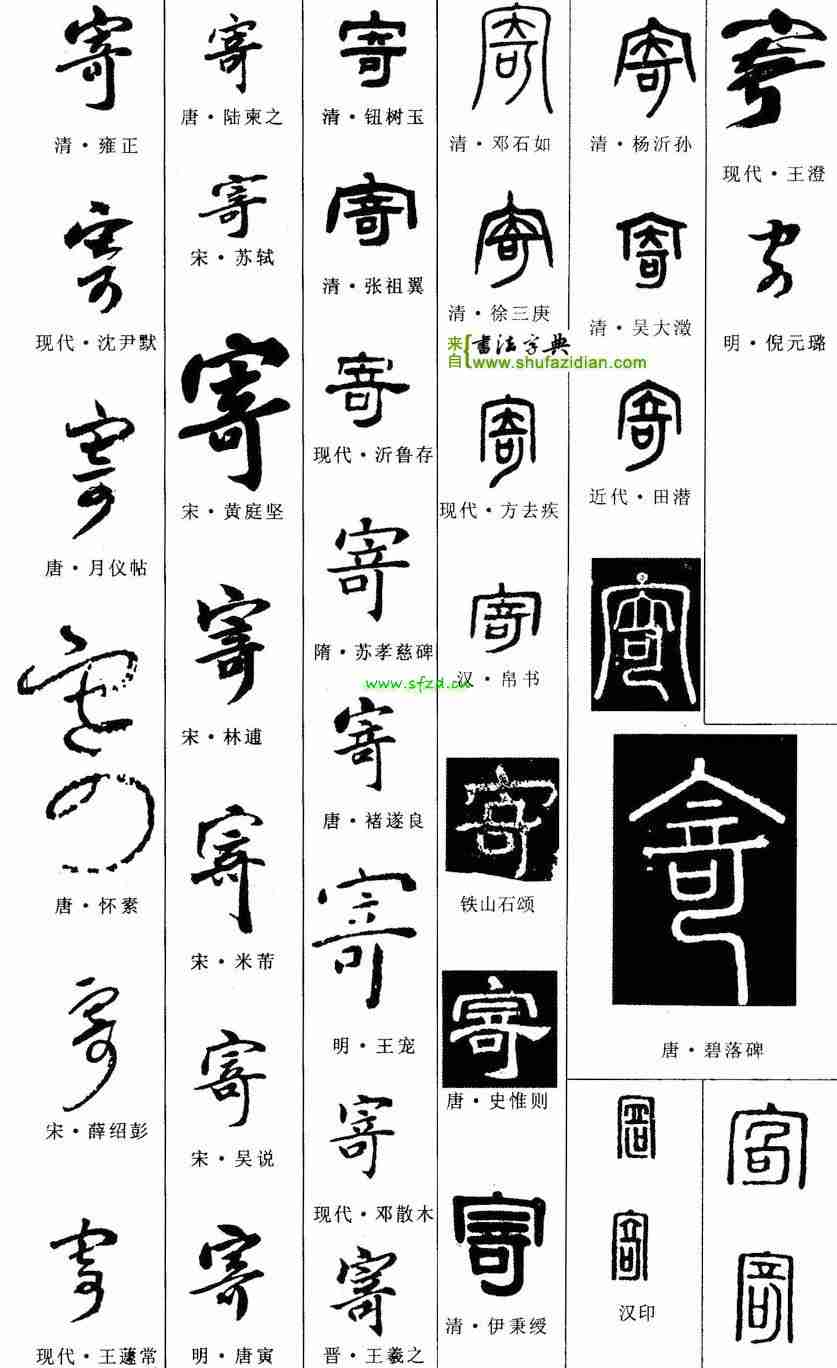 寄
清·雍正
寄
现代·沈尹默
寄
唐·月仪帖
寄
唐·怀素
寄
宋·薛绍彭
寄
现代·王蘧常
寄
唐·陆柬之
寄
宋·苏轼
寄
宋·黄庭坚
寄
宋·林逋
寄
宋·米芾
寄
宋·吴说
寄
明·唐寅
寄
清·钮树玉
寄
清·张祖翼
寄
现代·沂鲁存
寄
隋·苏孝慈碑
寄
唐·褚遂良
寄
明·王宠
寄
现代·邓散木
寄
晋·王羲之
寄
清·邓石如
寄
清·徐三庚
来自{书法字典
www.shufazidian.com
寄
现代·方去疾
寄
汉·帛书
www.sfzd.cn
寄
铁山石颂
寄
唐·史惟则
寄
清·伊秉绶
寄
清·杨沂孙
寄
清·吴大澂
寄
近代·田潜
寄
寄
唐·碧落碑
寄
寄
汉印
寄
寄
寄
现代·王澄
寄
明·倪元璐